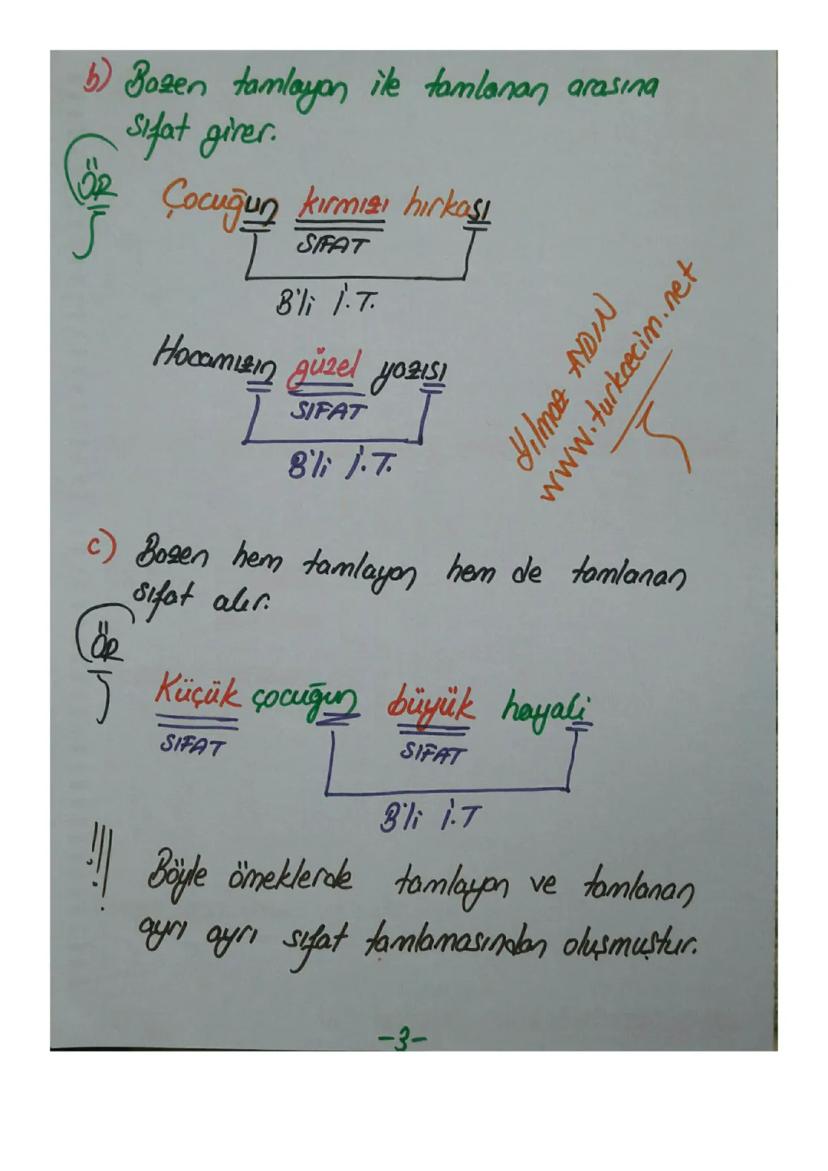 b) Bazen tamlayan ile tamlanan arasına
sıfat girer.
ÖR
Çocuğun kırmızı hırkası
SIFAT
B'li İ.T.
Hocamızın güzel yazısı
SIFAT
B'li İ.T.
Yılmaz AYDIN
www.turkcecim.net
c) Bazen hem tamlayan hem de tamlanan
sıfat alır.
ÖR
Küçük çocuğun büyük hayali
SIFAT SIFAT
B'li İ.T
!!! Böyle örneklerde tamlayan ve tamlanan
ayrı ayrı sıfat tamlamasından oluşmuştur.
-3-